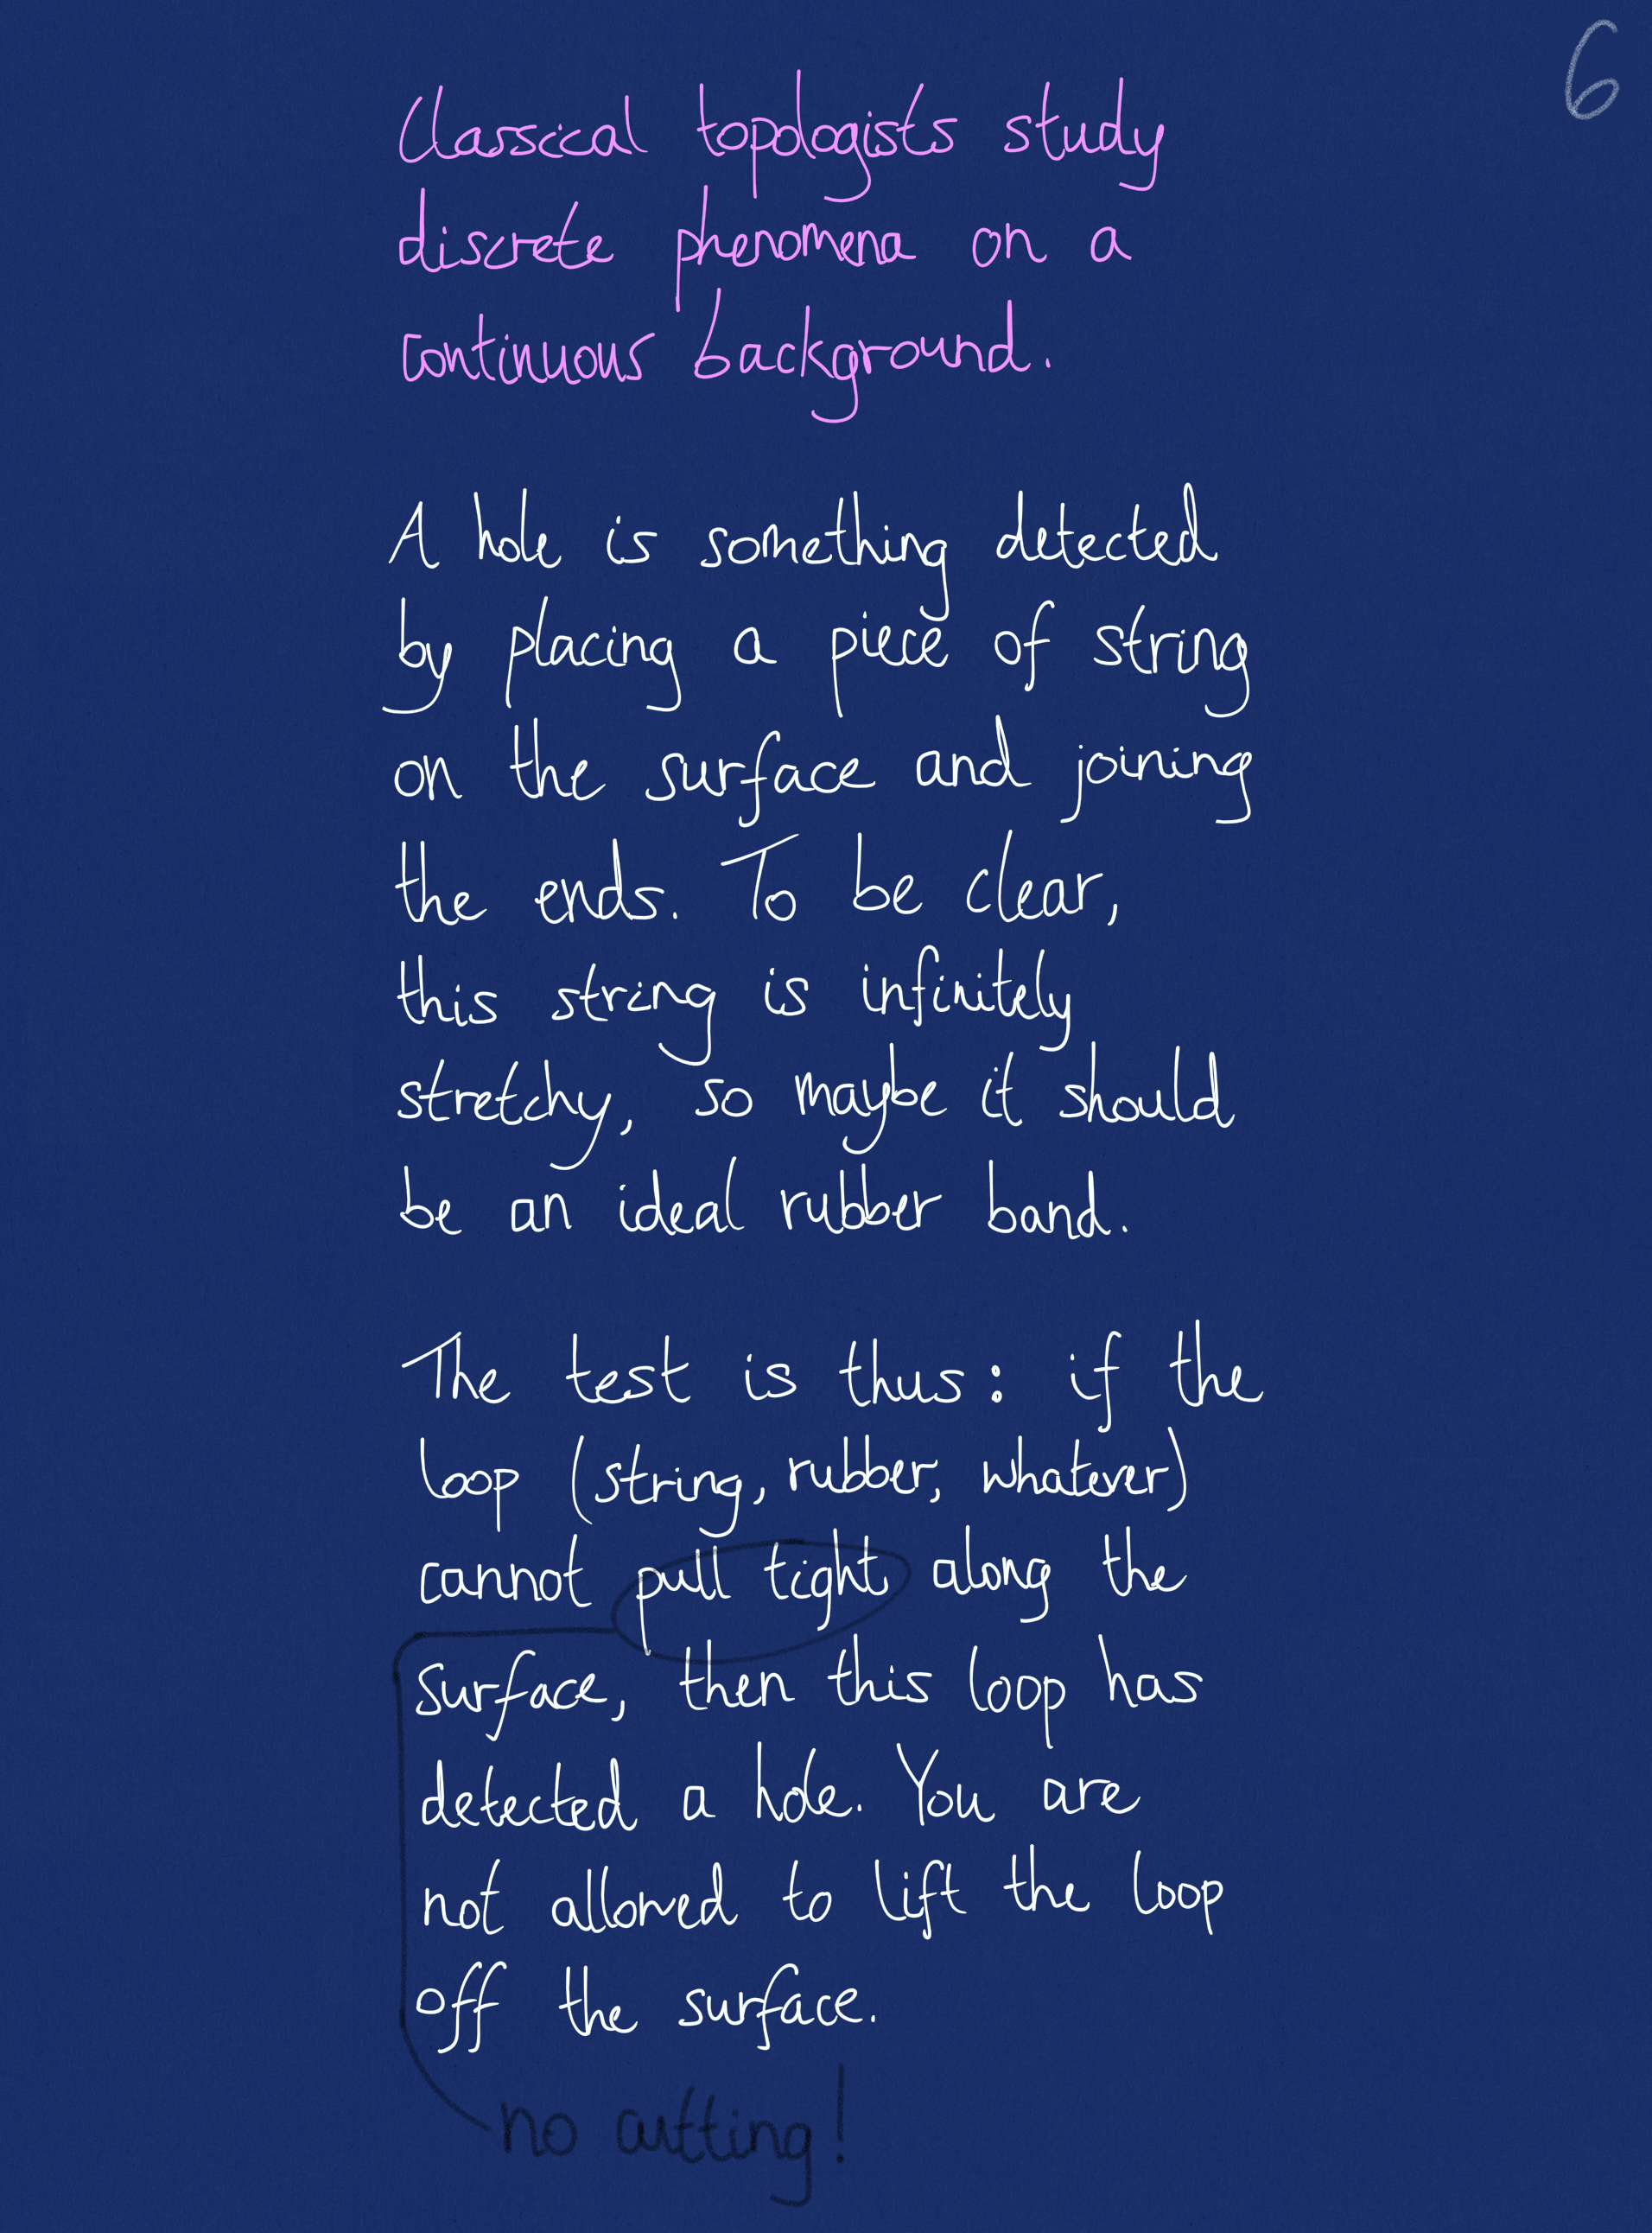 6
Classical topologists study
discrete phenomena on a
continuous background.
A hole is something detected
by placing a piece of string
on the surface and joining
the ends. To be clear,
this string is infinitely
stretchy, so maybe it should
be an ideal rubber band.
The test is thus: if the
loop (string, rubber, whatever)
cannot pull tight along the
surface, then this loop has
detected a hole. You are
not allowed to lift the loop
off the surface.
no cutting!